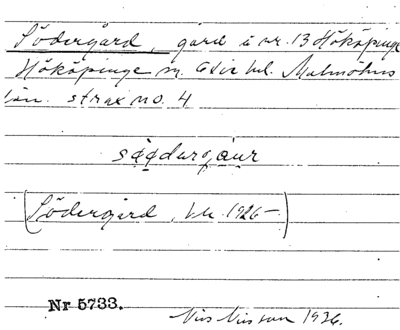 Södergård, gård i nr. 13 Hököpinge
Hököpinge sn. Oxie hd. Malmöhus
län. strax no. 4
[Södergård, bk. 1926-]
Nr 5733.
Nils Nilsson 1936.